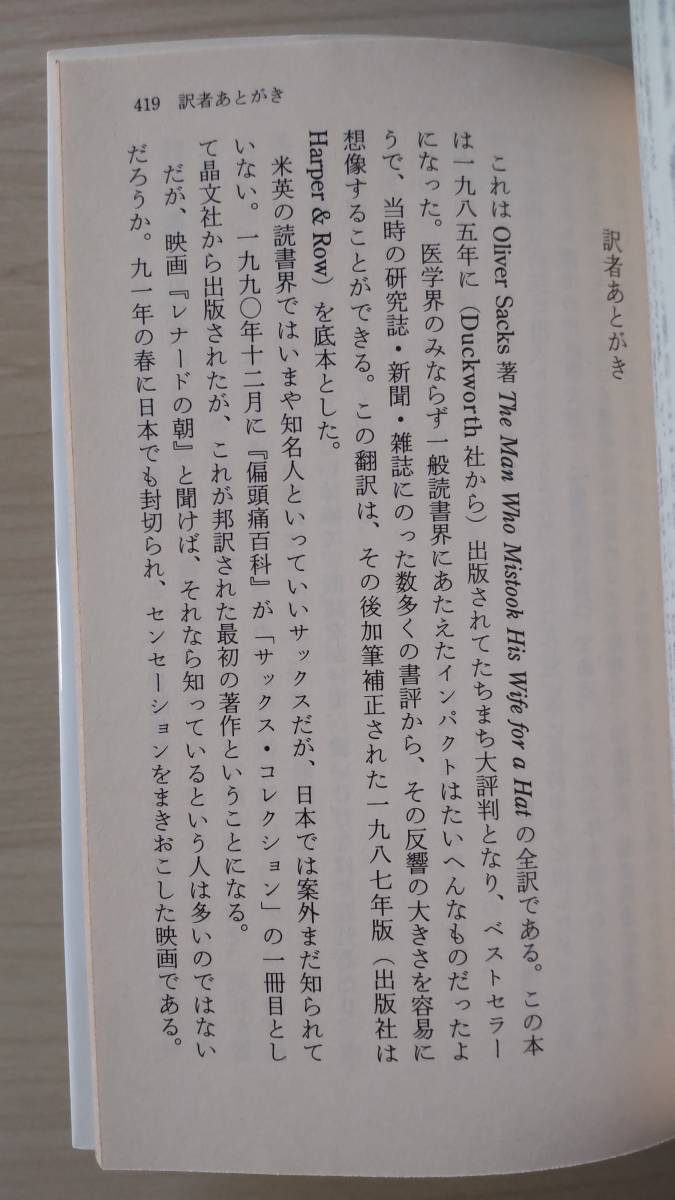 419 訳者あとがき
訳者あとがき
これは Oliver Sacks 著 The Man Who Mistook His Wife for a Hat の全訳である。この本
は一九八五年に（Duckworth 社から）出版されてたちまち大評判となり、ベストセラー
になった。医学界のみならず一般読書界にあたえたインパクトはたいへんなものだったよ
うで、当時の研究誌・新聞・雑誌にのった数多くの書評から、その反響の大きさを容易に
想像することができる。この翻訳は、その後加筆補正された一九八七年版（出版社は
Harper & Row）を底本とした。
米英の読書界ではいまや知名人といっていいサックスだが、日本では案外まだ知られて
いない。一九九〇年十二月に『偏頭痛百科』が「サックス・コレクション」の一冊目とし
て晶文社から出版されたが、これが邦訳された最初の著作ということになる。
だが、映画『レナードの朝』と聞けば、それなら知っているという人は多いのではない
だろうか。九一年の春に日本でも封切られ、センセーションをまきおこした映画である。